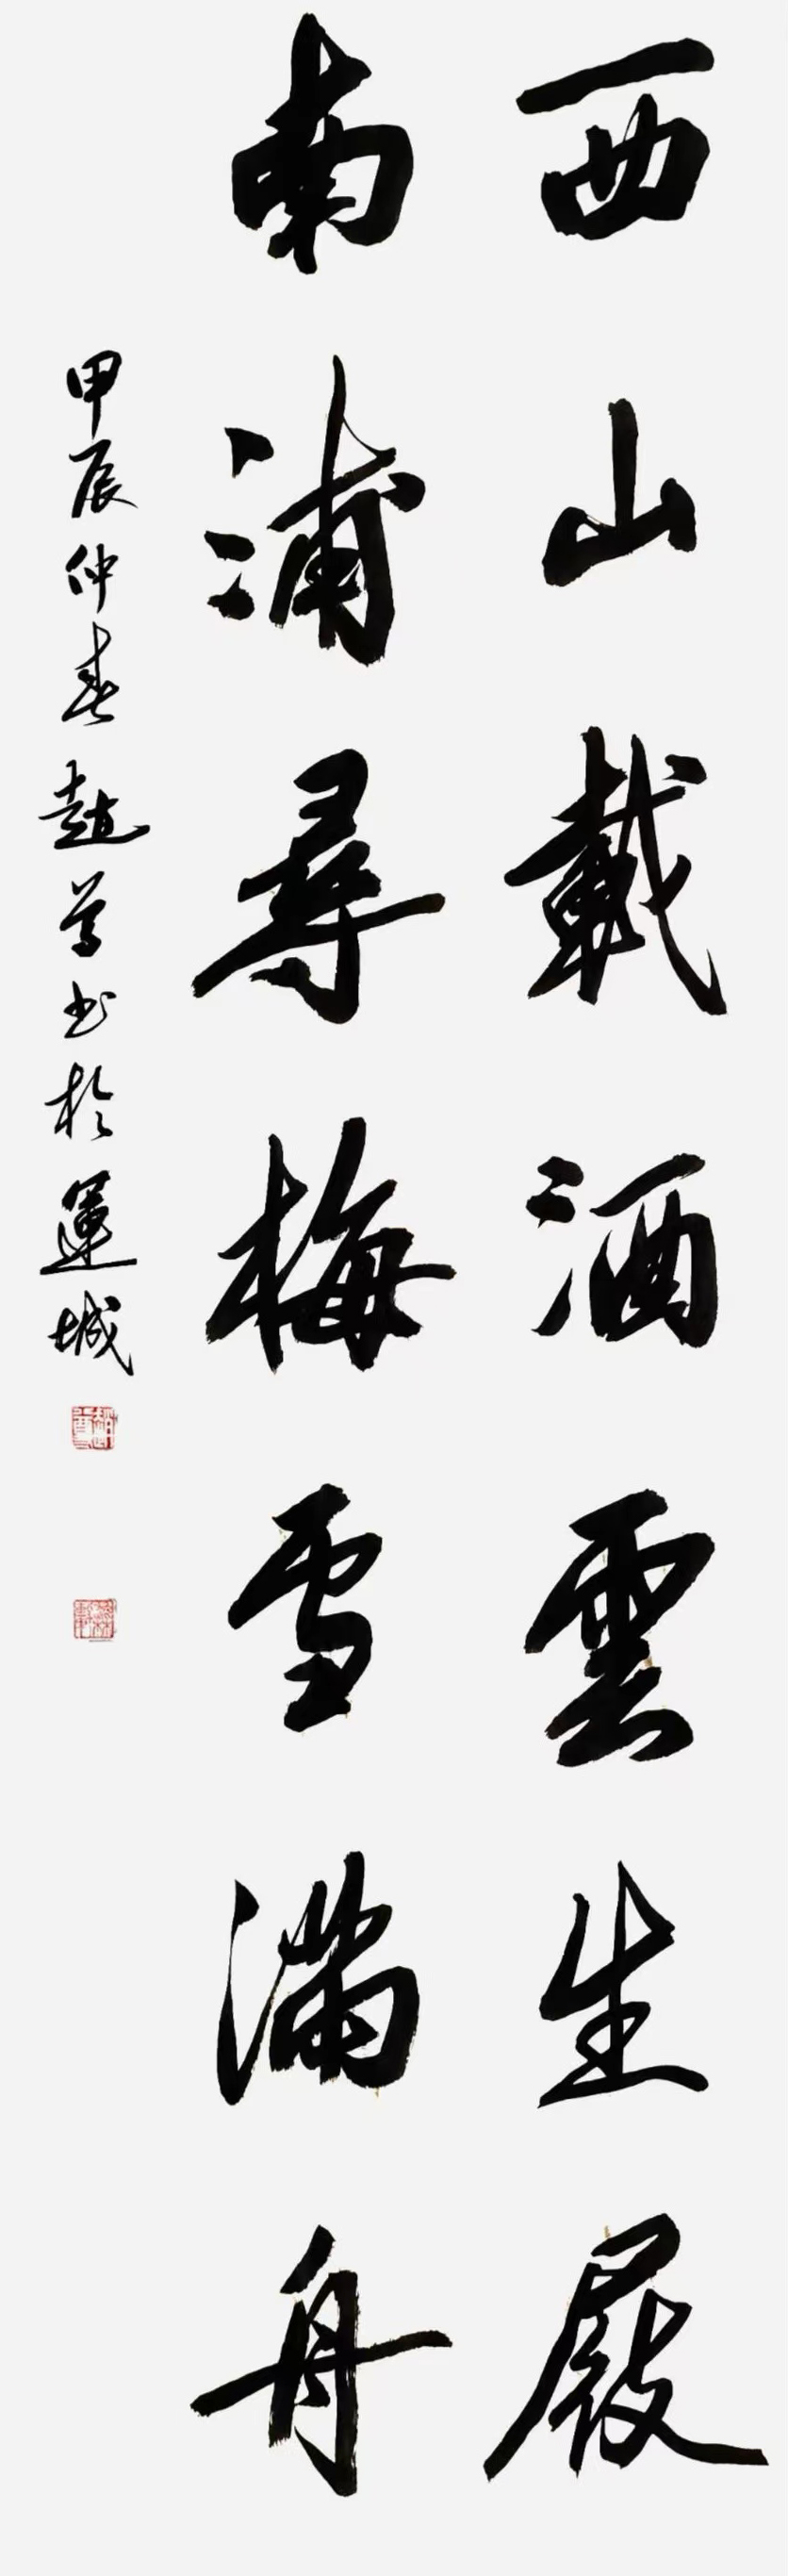 西山載酒雲生屐
南浦尋梅雪滿舟
甲辰仲春趙尊书於運城